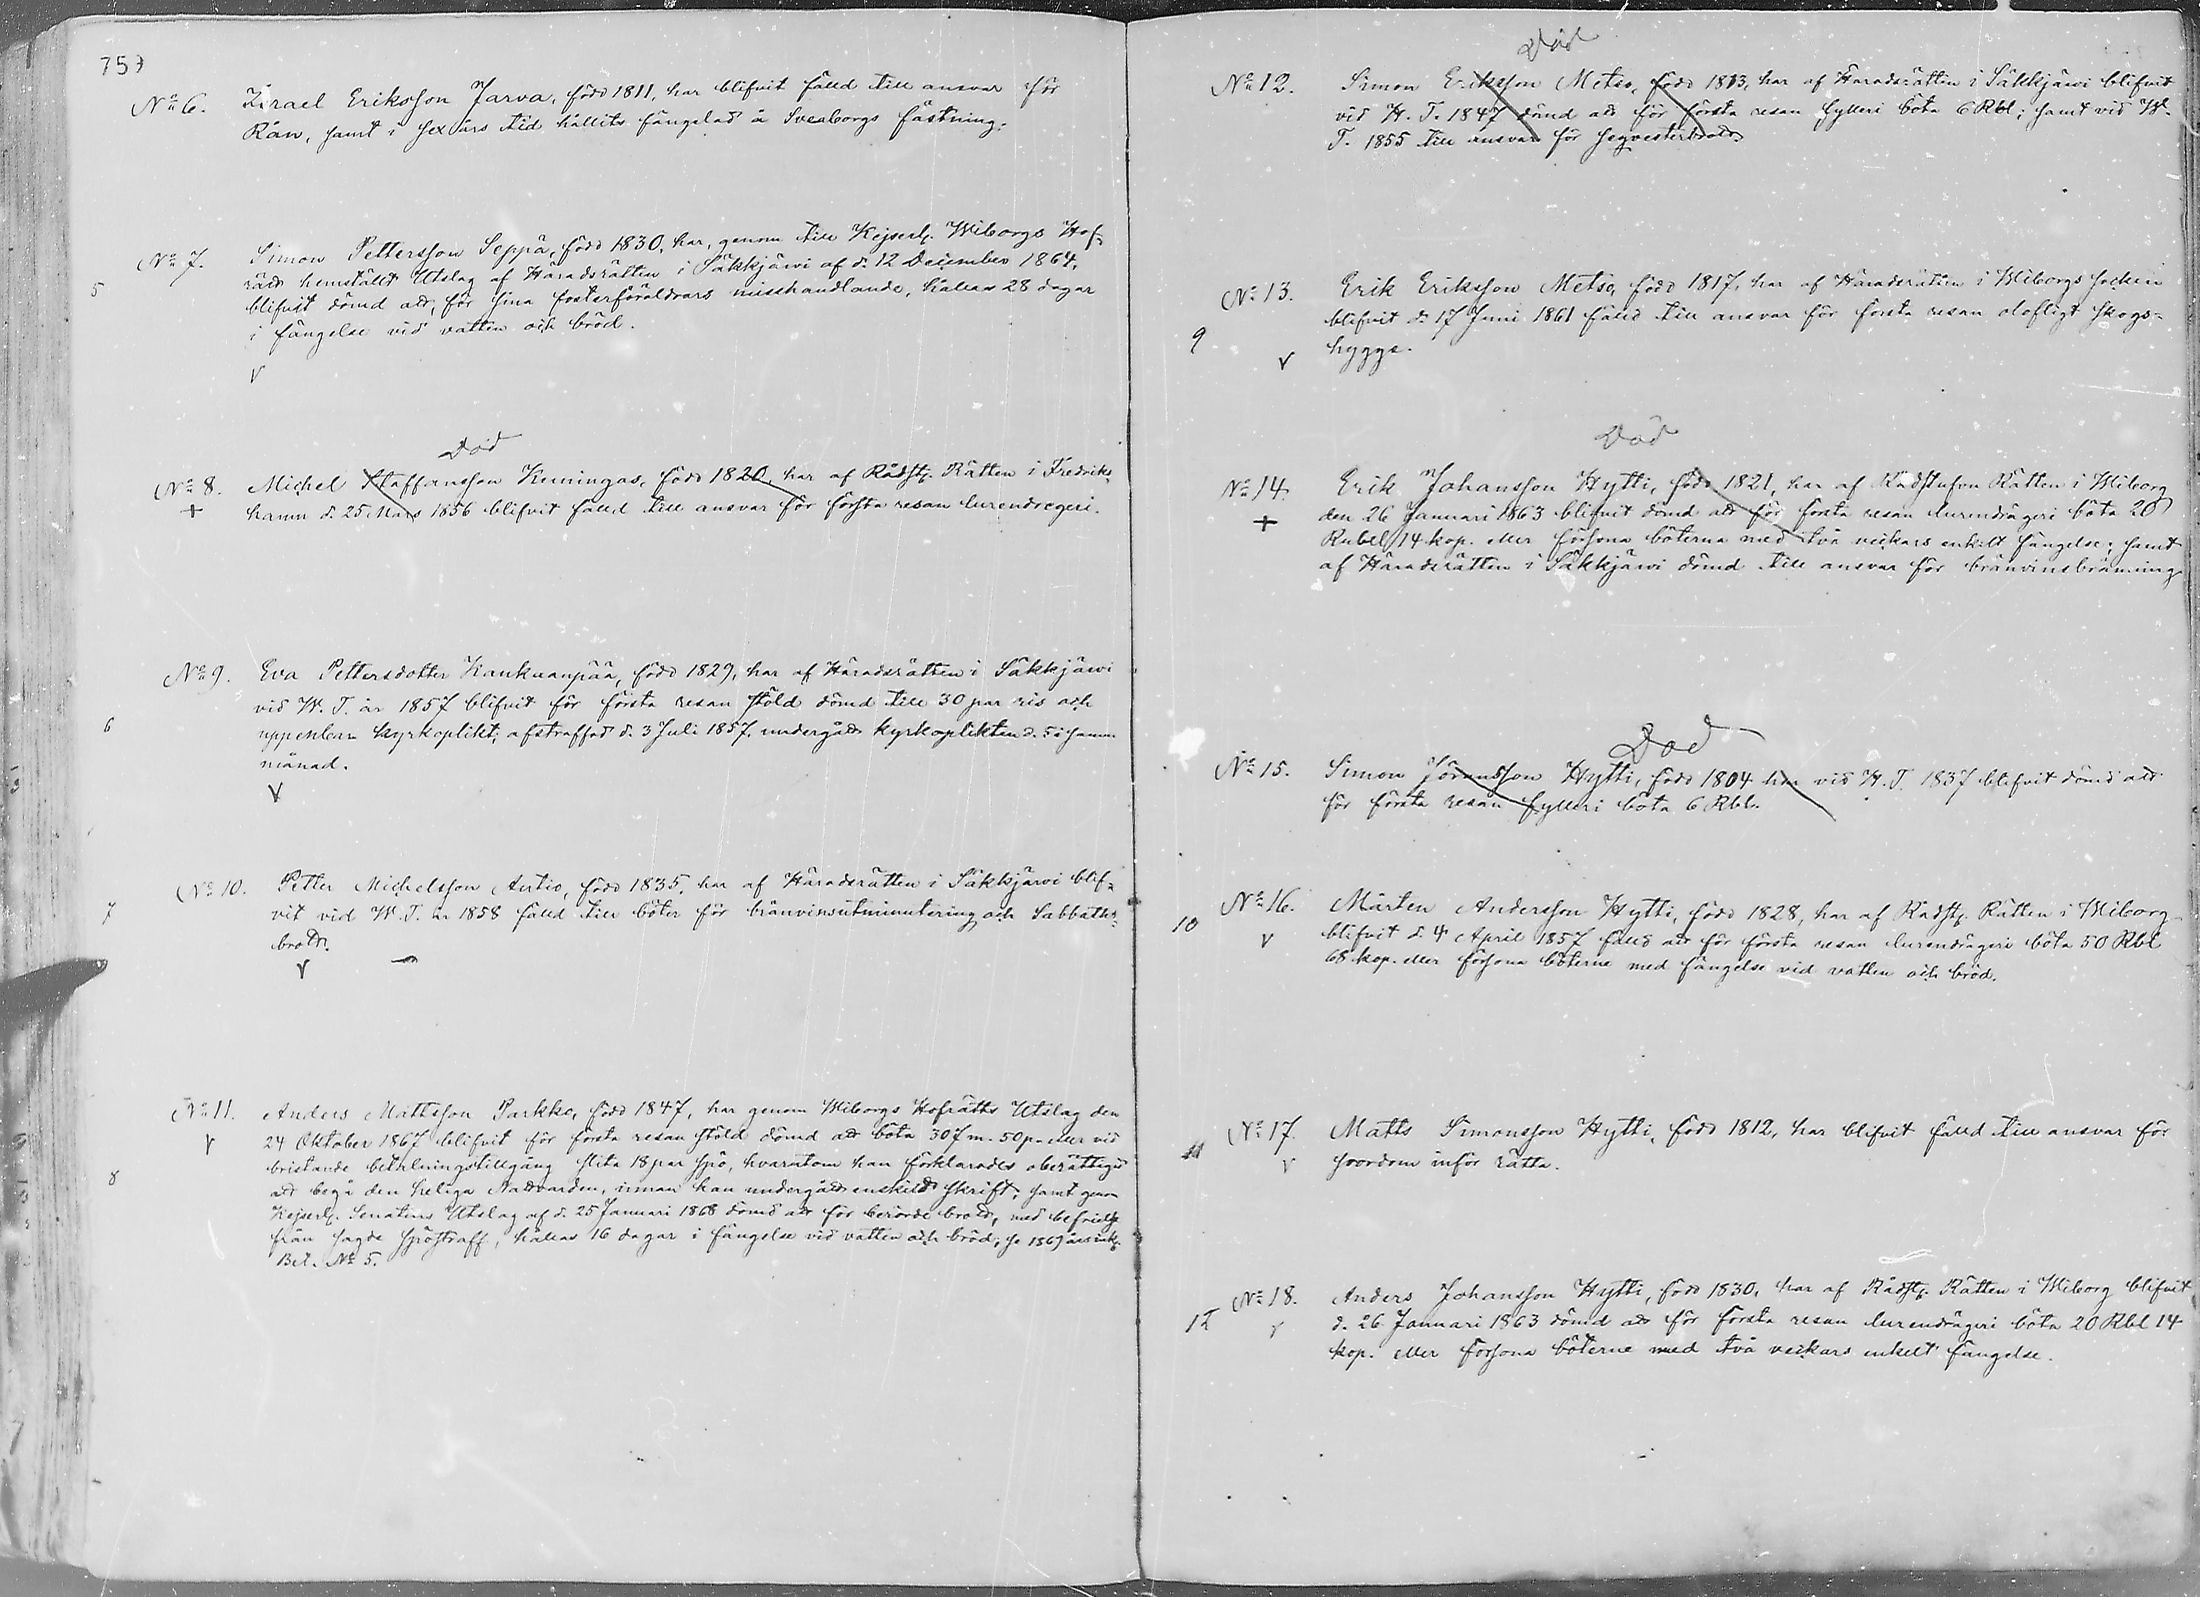 757
No 6. Israel Eriksson Jarva, född 1811, har blifvit fälld till ansvar för
Rån, samt i sex års tid hållits fängslad å Sveaborgs fästning.
No 7. Simon Pettersson Seppä, född 1830, har, genom till Kejserl. Wiborgs Hof-
rätt hemställdt Utslag af Häradsrätten i Säkkjärvi af d. 12 December 1864,
5
blifvit dömd att, för sina fosterföräldrars misshandlande, hållas 28 dagar
i fängelse vid vatten och bröd.
V
Död
No 8. Michel Staffansson Kemingas, född 1820, har af Rådst. Rätten i Fredriks-
+ hamn d. 25 Mars 1856 blifvit fälld till ansvar för första resan lurendregeri.
No 9. Eva Pettersdotter Kankaanpää, född 1829, har af Häradsrätten i Säkkjärvi
vid W. T. år 1857 blifvit för första resan stöld dömd till 30 par ris och
6 uppenbar kyrkoplikt; afstraffad d. 3 Juli 1857, undergått kyrkoplikten d. 5 i samm.
månad.
V
No 10. Petter Michelsson Antio, född 1835, har af Häradsrätten i Säkkjärvi blif-
7 vit vid W. T. år 1858 fälld till böter för bränvinsutminutering och Sabbaths-
brott.
V
No 11. Anders Mattsson Parkko, född 1847, har genom Wiborgs Hofrätts Utslag den
V 24 Oktober 1867 blifvit för första resan stöld dömd att böta 307 m. 50 p. eller vid
bristande betalningstillgång slita 18 par spö, hvarutom han förklarades oberättigad
8 att begå den heliga Nattvarden, innan han undergått enskildt skrift; samt genom
Kejserl. Senatens Utslag af d. 25 Januari 1868 dömd att för berörde brott, med befrielse
från sagde spöstraff, hållas 16 dagar i fängelse vid vatten och bröd; se 1869 års
Bil. No 5.
Död
No 12. Simon Eriksson Metso, född 1813, har af Häradsrätten i Säkkjärvi blifvit
vid H. T. 1847 dömd att för första resan fylleri böta 6 Rbl; samt vid W.
T. 1855 till ansvar för seqvesterbrott.
No 13. Erik Eriksson Metso, född 1817, har af Häradsrätten i Wiborgs socken
blifvit d. 17 Juni 1861 fälld till ansvar för första resan olofligt skogs-
9 V hygge.
Död
No 14. Erik Johansson Hytti, född 1821, har af Rådstufvu Rätten i Wiborg
+ den 26 Januari 1863 blifvit dömd att för första resan lurendrägeri böta 20
Rubel 14 kop. eller försona böterna med två veckors enkelt fängelse; samt
af Häradsrätten i Säkkjärvi dömd till ansvar för bränvinsbränning
Död
No 15. Simon Jöransson Hytti, född 1804 har vid H. T. 1837 blifvit dömd att
för första resan fylleri böta 6 Rbl.
No 16. Mårten Andersson Hytti, född 1828, har af Rådst. Rätten i Wiborg
10 V blifvit d. 4 April 1857 fälld att för första resan lurendrägeri böta 50 Rbl
68 kop. eller försona böterne med fängelse vid vatten och bröd.
No 17. Matts Simonsson Hytti, född 1812, har blifvit fälld till ansvar för
11 V hordom inför rätta.
No 18. Anders Johansson Hytti, född 1830, har af Rådst. Rätten i Wiborg blifvit
12 V d. 26 Januari 1863 dömd att för första resan lurendrägeri böta 20 Rbl 14
kop. eller försona böterne med två veckors enkelt fängelse.